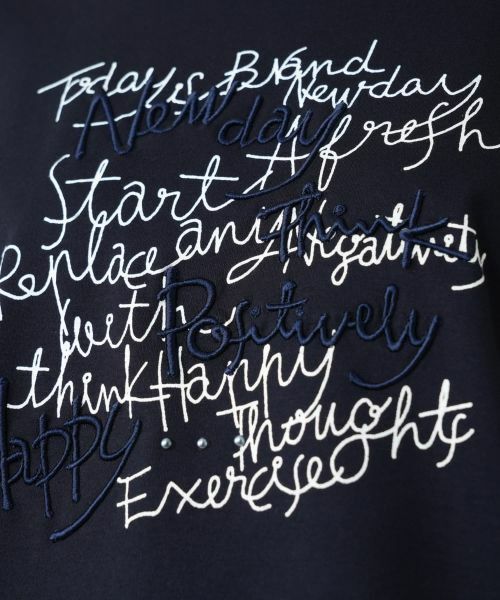 Today is Brand
Newday
New day
Start A fresh
Think
Replace any Nrgativety
with
Positively
think Happy
Happy
Thoughts
Exercise